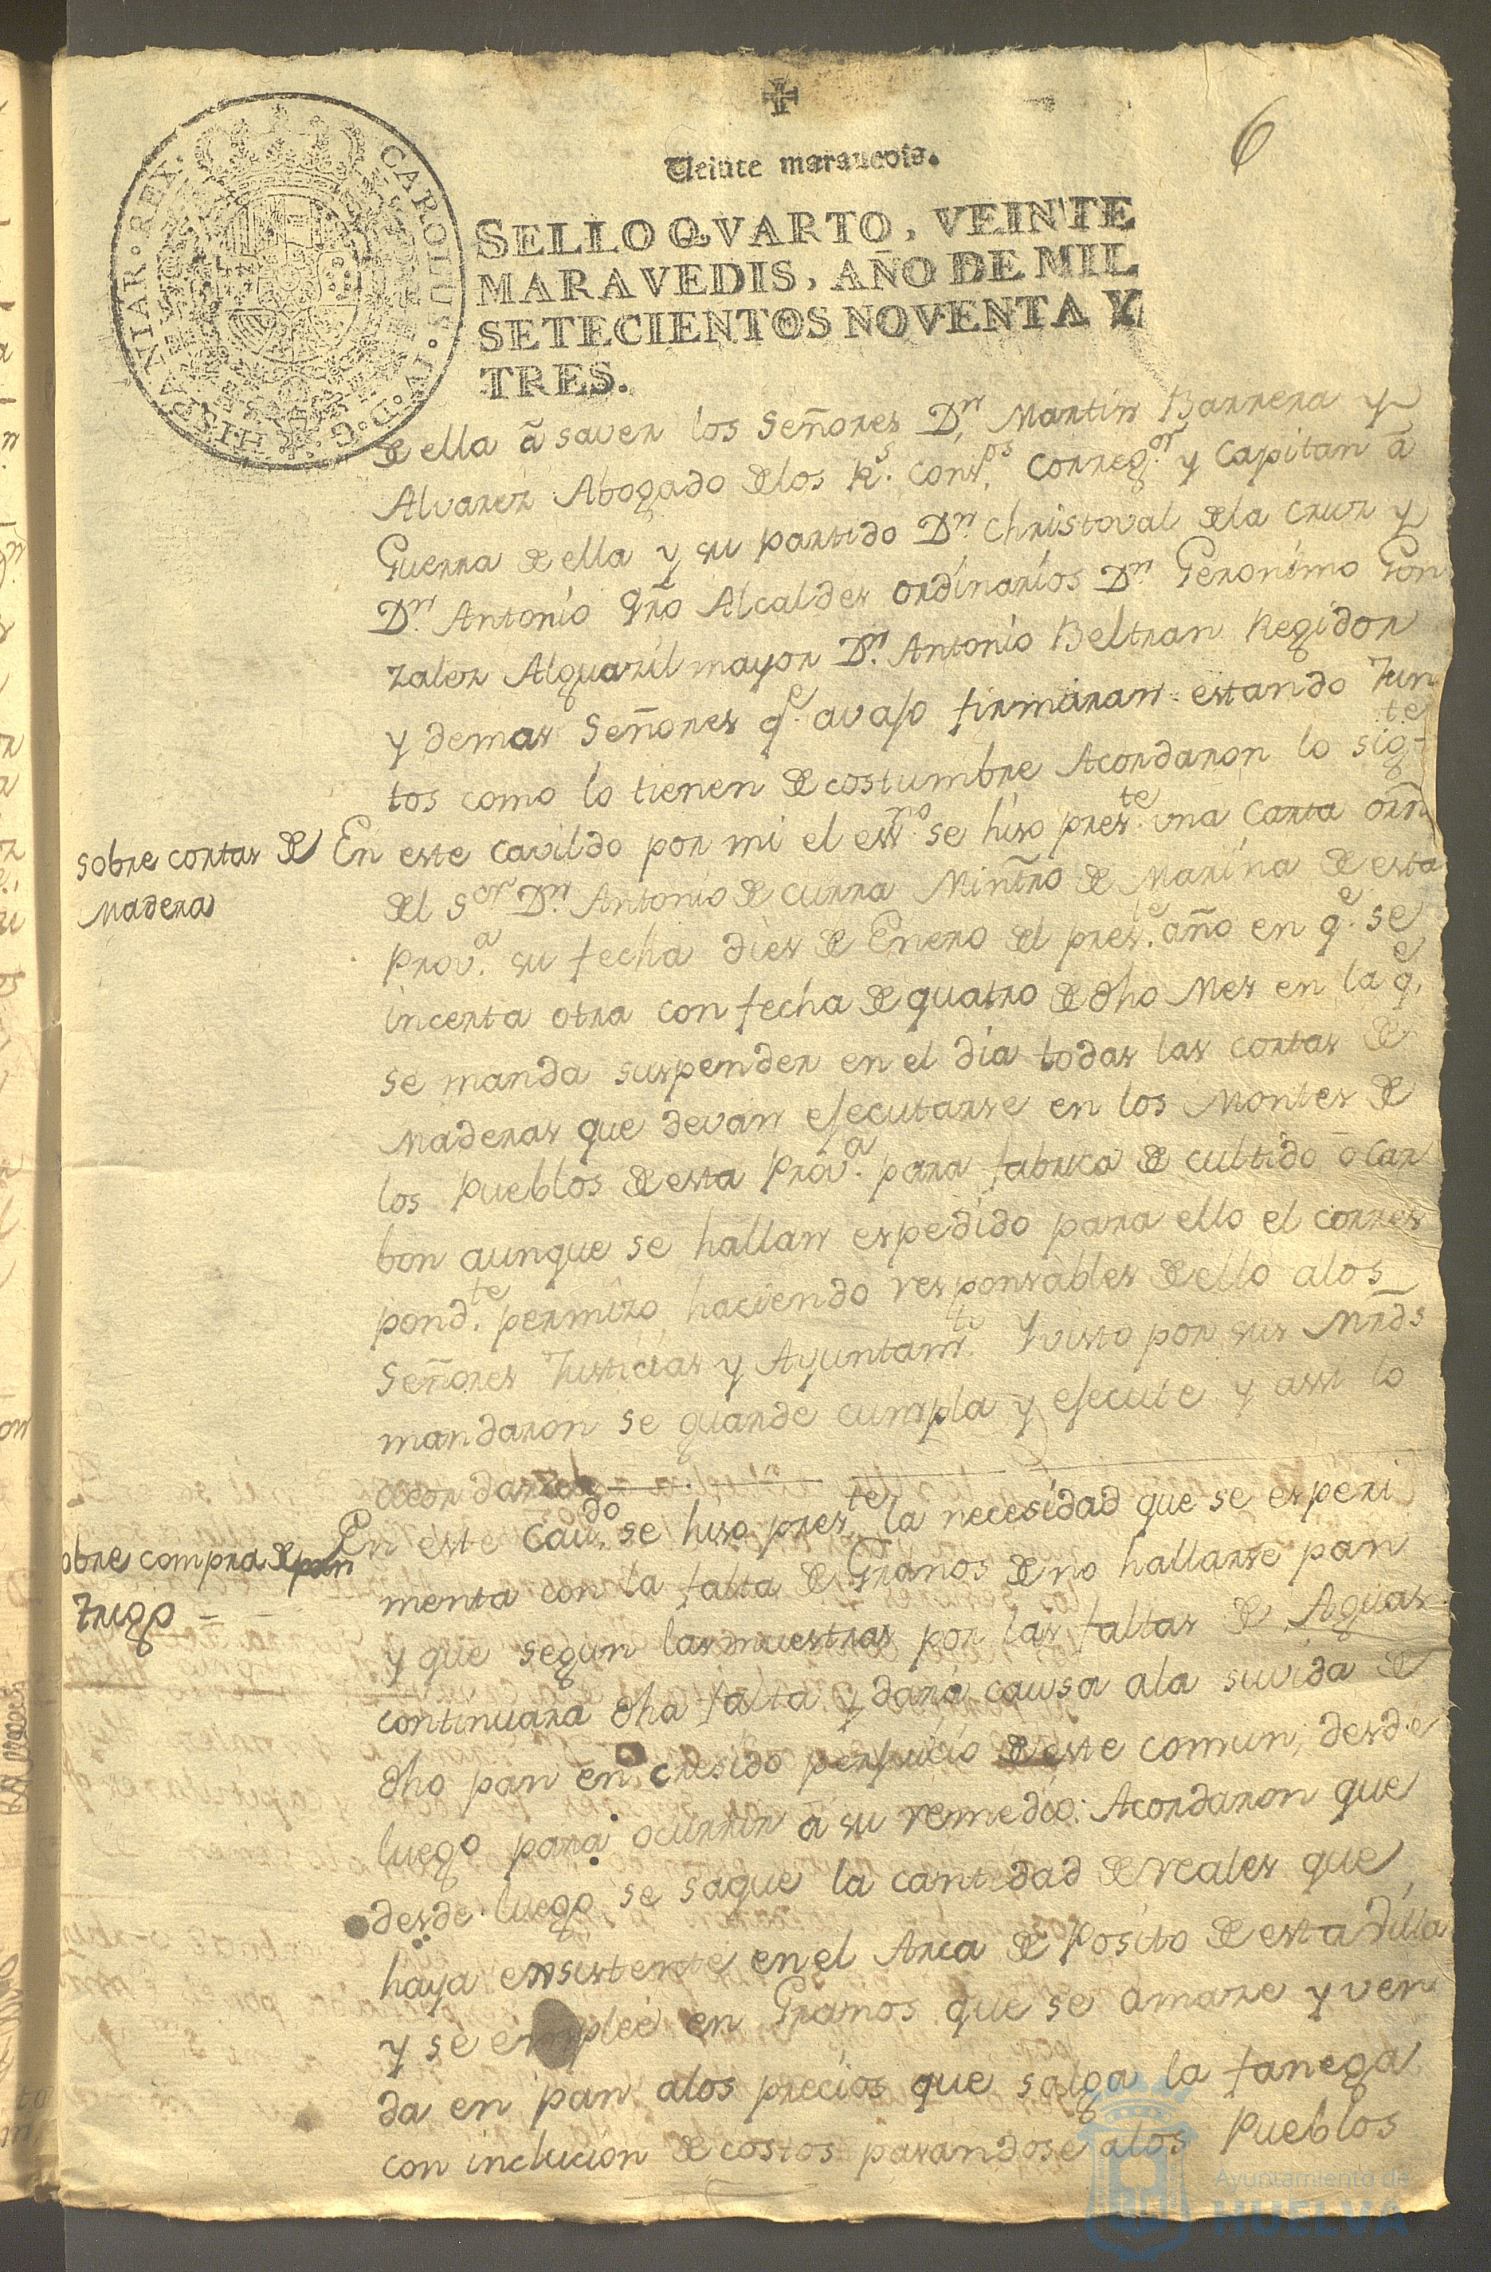 6
Veinte maravedis.
SELLO QVARTO, VEINTE
MARAVEDIS, AÑO DE MIL
SETECIENTOS NOVENTA Y
TRES.
CAROLUS · IV · D · G · HISPANIAR · REX ·
de ella â saver los Señores Dn. Martin Barrera y
Alvarez Abogado delos Rs. Consos. Corregor. y Capitan â
Guerra de ella y su partido Dn. Christoval dela Cruz y
Dn. Antonio Qro Alcaldes ordinarios Dn. Geronimo Gon
zalez Alguazil mayor Dn. Antonio Beltran Regidor
y demas Señores qe. avajo firmaran estando Jun
tos como lo tienen de costumbre Acordaron lo sigte
sobre cortas de
Madera
En este cavildo por mi el essno. se hiso preste. una Carta orn
del Sor Dn. Antonio de curra Mintro de Marina de esta
Prova. su fecha dies de Enero del preste. año en qe. se
incerta otra con fecha de quatro de dho Mes en la qe.
se manda suspender en el dia todas las cortas de
Maderas que devan ejecutarse en los Montes de
los Pueblos de esta Prova. para fabrica de cultido ô Car
bon aunque se hallan espedido para ello el corres
pondte. permizo haciendo responsables de ello alos
Señores Justicias y Ayuntamto. Y visto por sus Mrds
mandaron se guarde cumpla y ejecute y assi lo
acordaron
obre compra de pan
Trigo
En este Cavdo. se hiso preste. la necesidad que se esperi
menta con la falta de Granos de no hallarse pan
y que segun las muestras por las faltas de Aguas
continuara dha falta y dará causa ala suvida de
dho pan en cresido perjuicio de este comun, desde
luego para ocurrir a su remedio: Acordaron que
desde luego se saque la cantidad de reales que
haya ensistente en el Arca de Posito de esta Villa
y se emplee en Granos que se amaze y ven
da en pan alos precios que salga la fanega
con inclucion de costos pasandose alos Pueblos
Ayuntamiento de
HUELVA